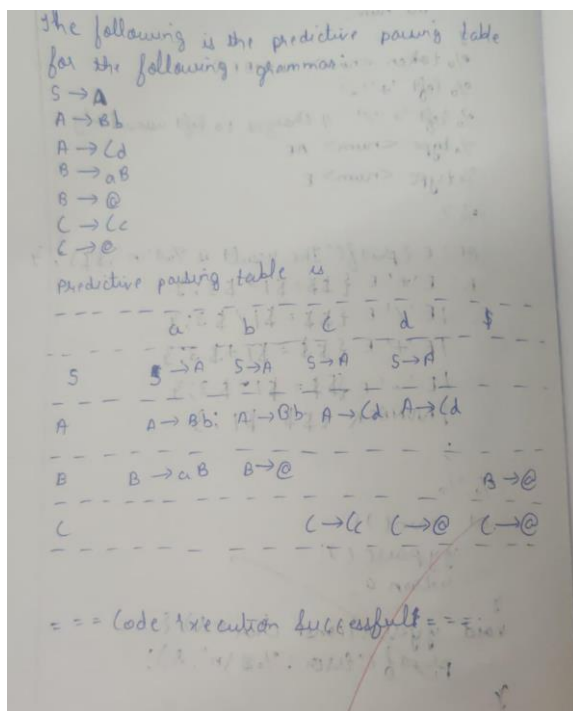 The following is the predictive parsing table
for the following grammar:
S → A
A → Bb
A → Cd
B → aB
B → @
C → Cc
C → @
Predictive parsing table is
a b c d $
S S→A S→A S→A S→A
A A→Bb A→Bb A→Cd A→Cd
B B→aB B→@ B→@
C C→Cc C→@ C→@
= = = Code Execution Successful = = =